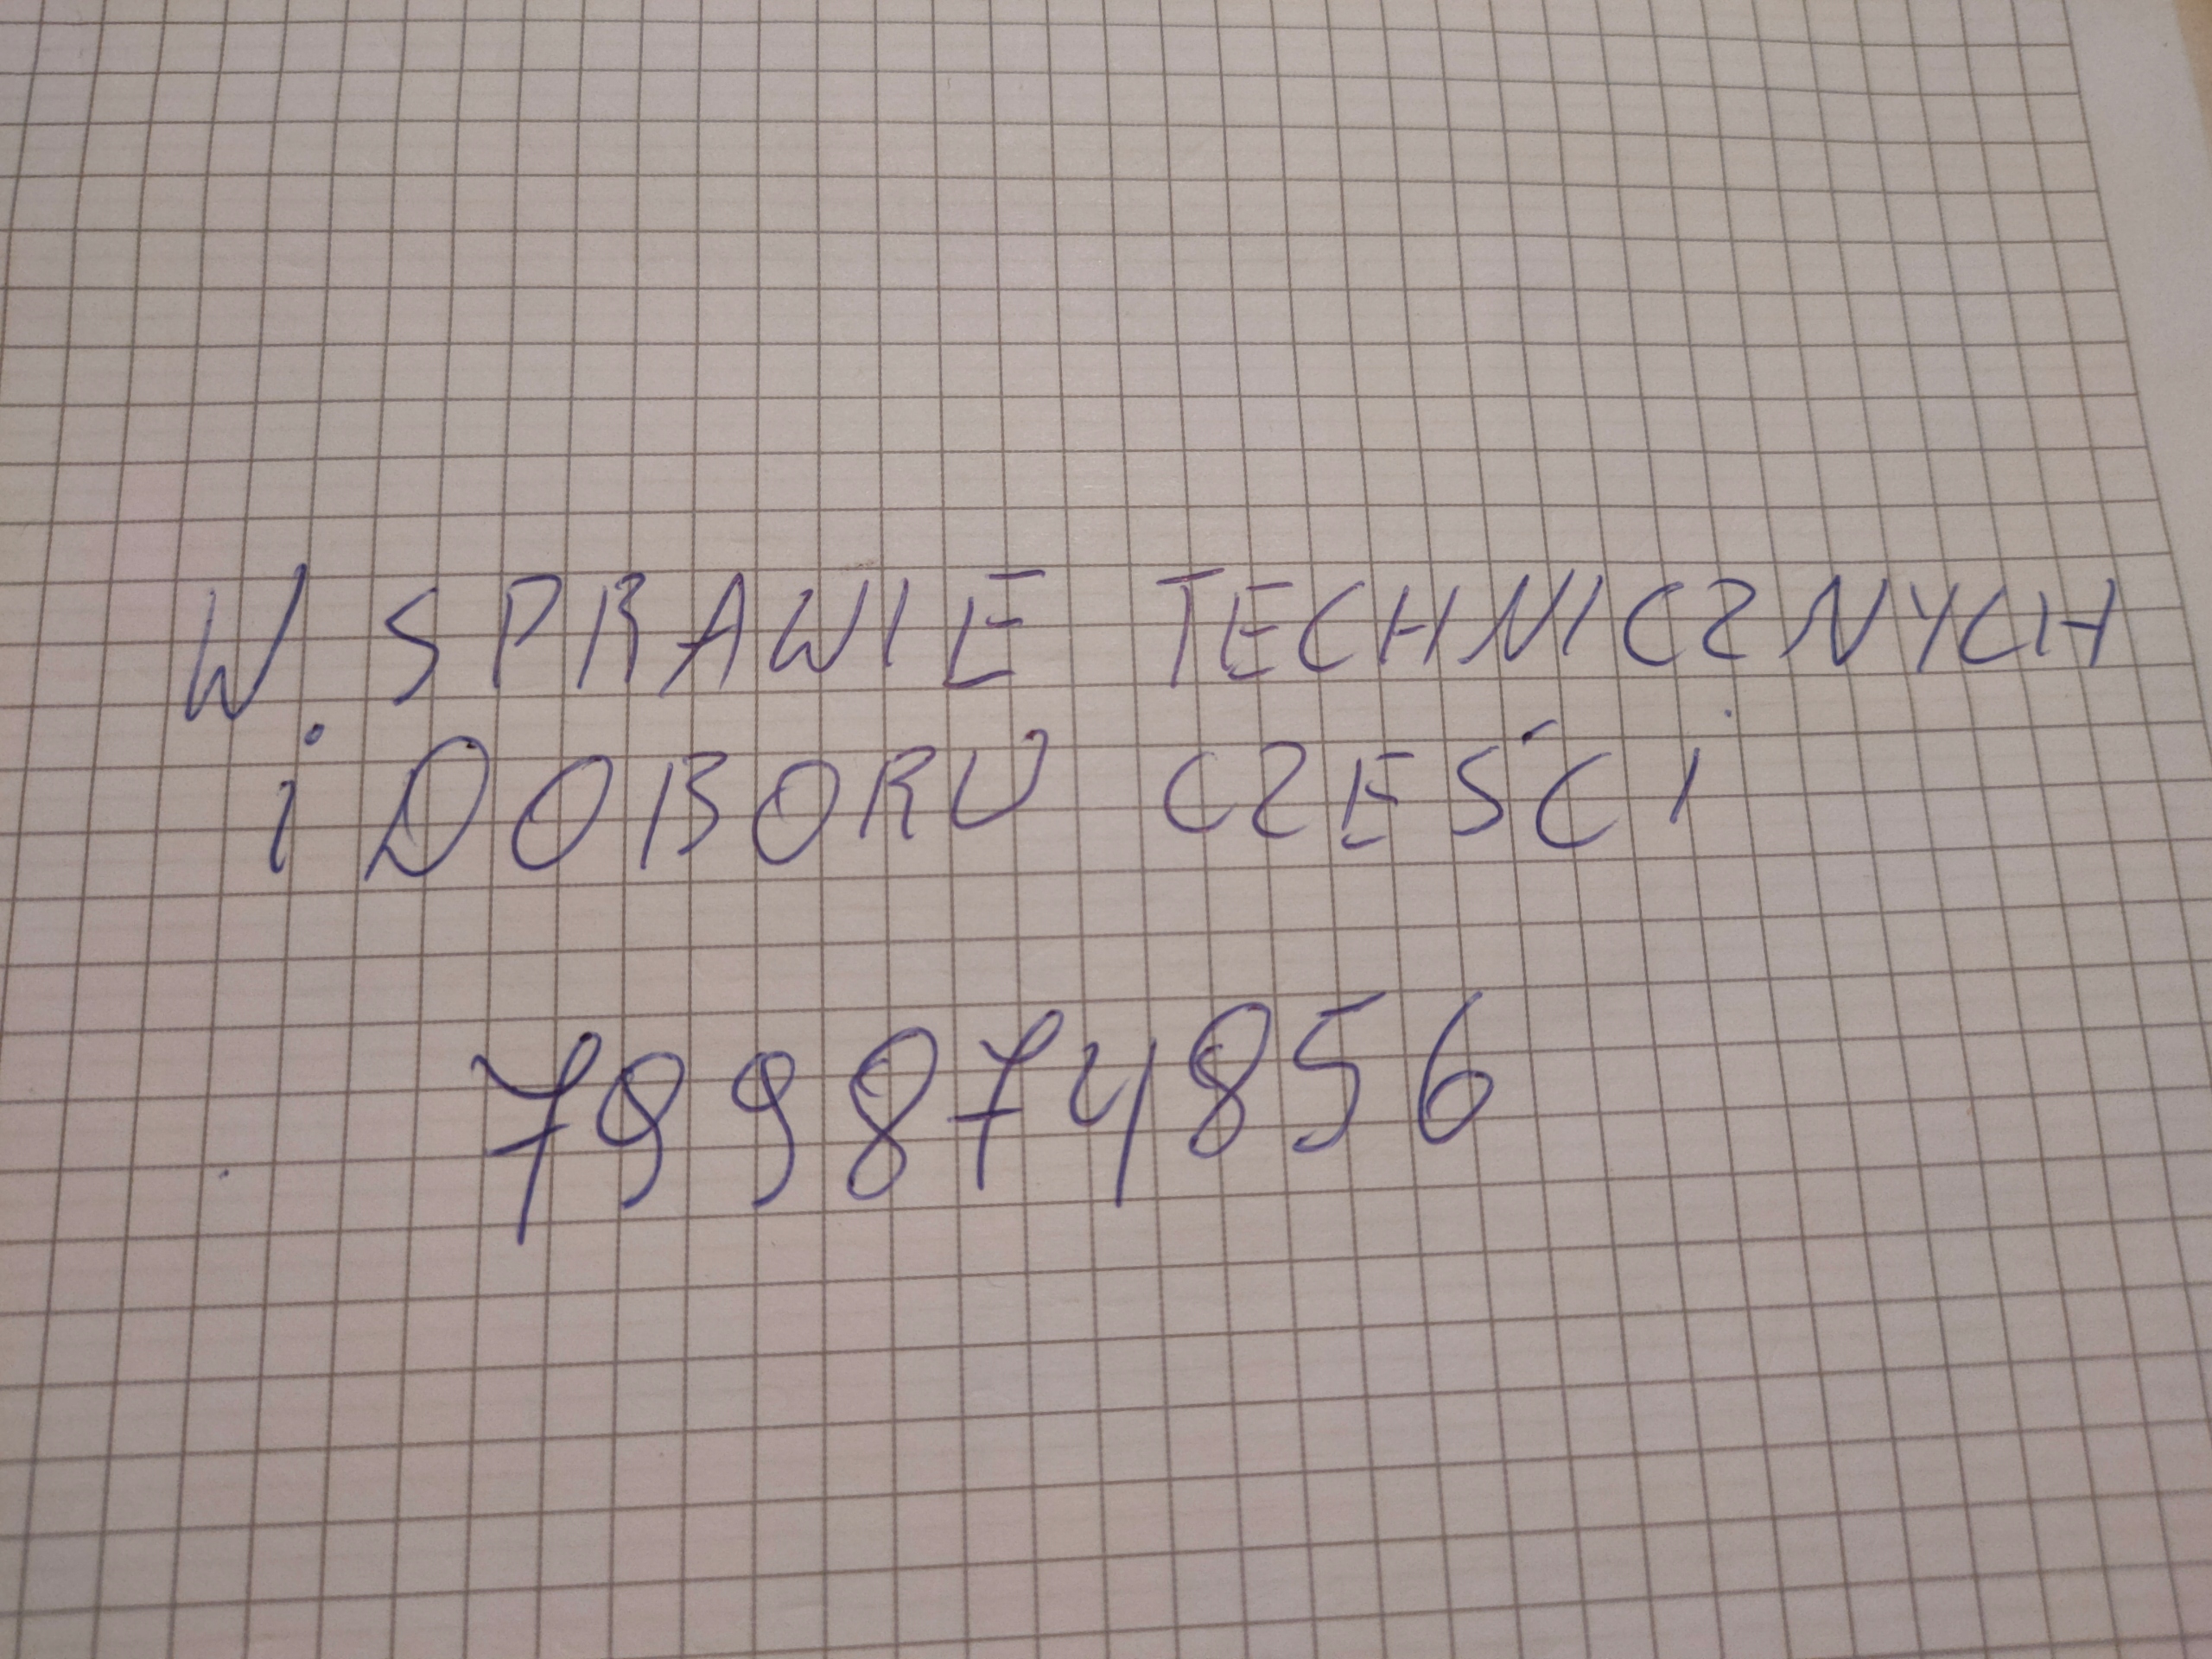 W SPRAWIE TECHNICZNYCH
i DOBORU CZEŚCI
799874856